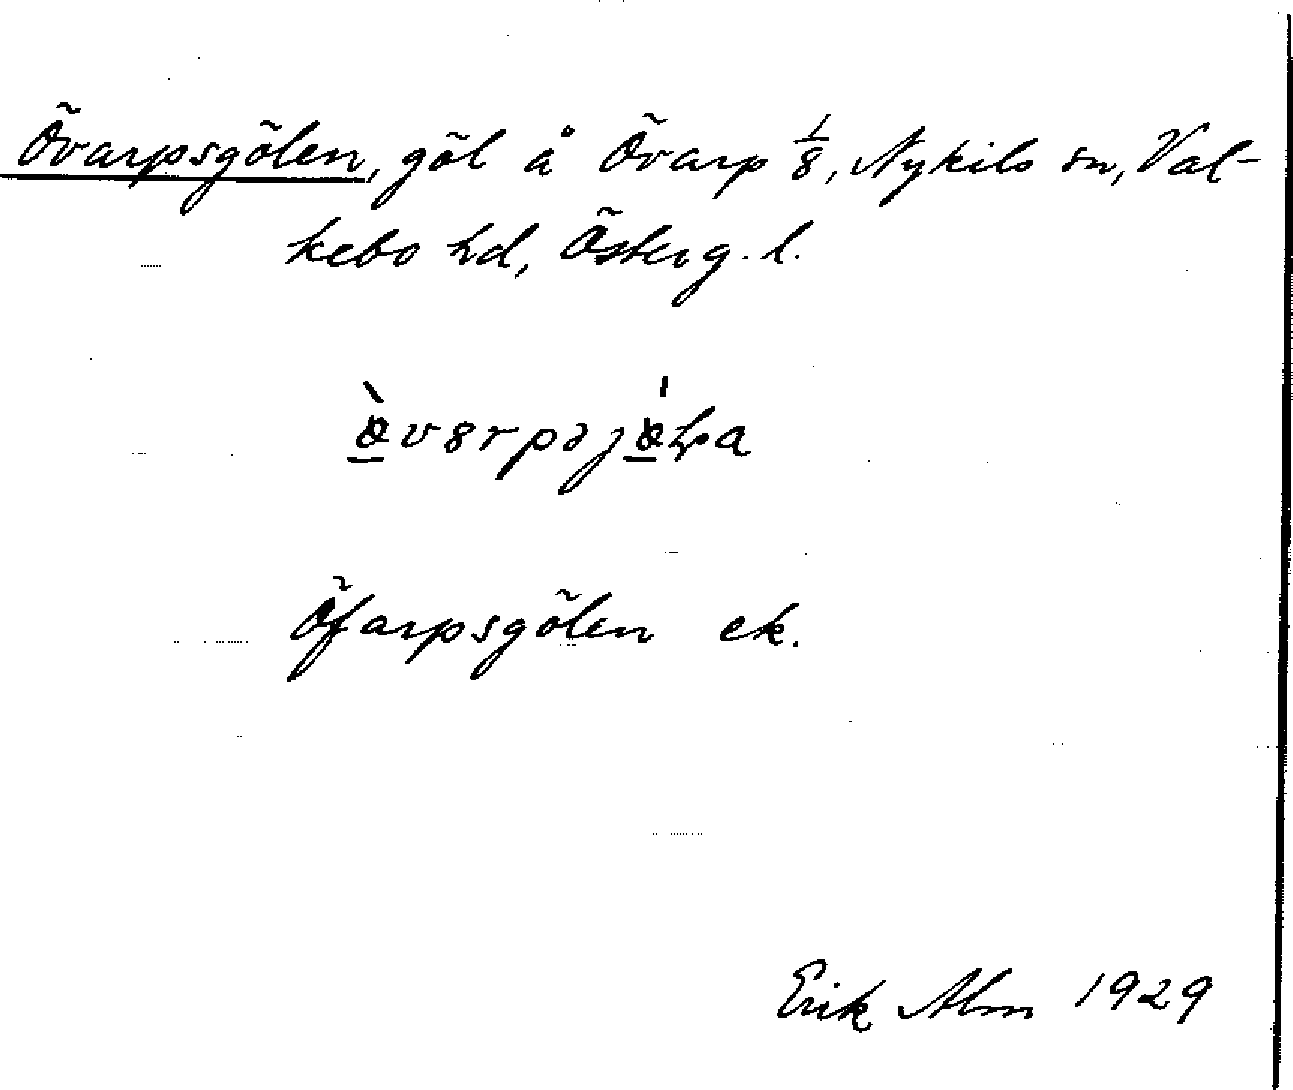 Övarpsgölen, göl å Övarp 1/8, Nykils sn, Val-
kebo hd, Österg. l.
Öfarpsgölen ek.
Erik Alm 1929